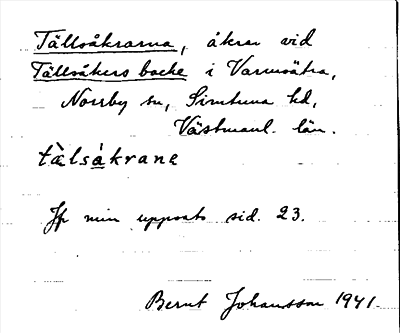 Tällsåkrarna, åkrar vid
Tällsåkers backe i Varmsätra,
Norrby sn, Simtuna hd,
Västmanl. län.
tὰlsåkrane
Jfr min uppsats sid. 23.
Bernt Johansson 1941.